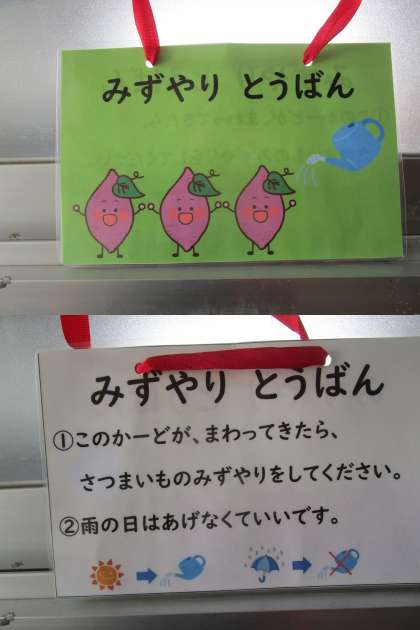 みずやり とうばん
みずやり とうばん
①このかーどが、まわってきたら、
さつまいものみずやりをしてください。
②雨の日はあげなくていいです。